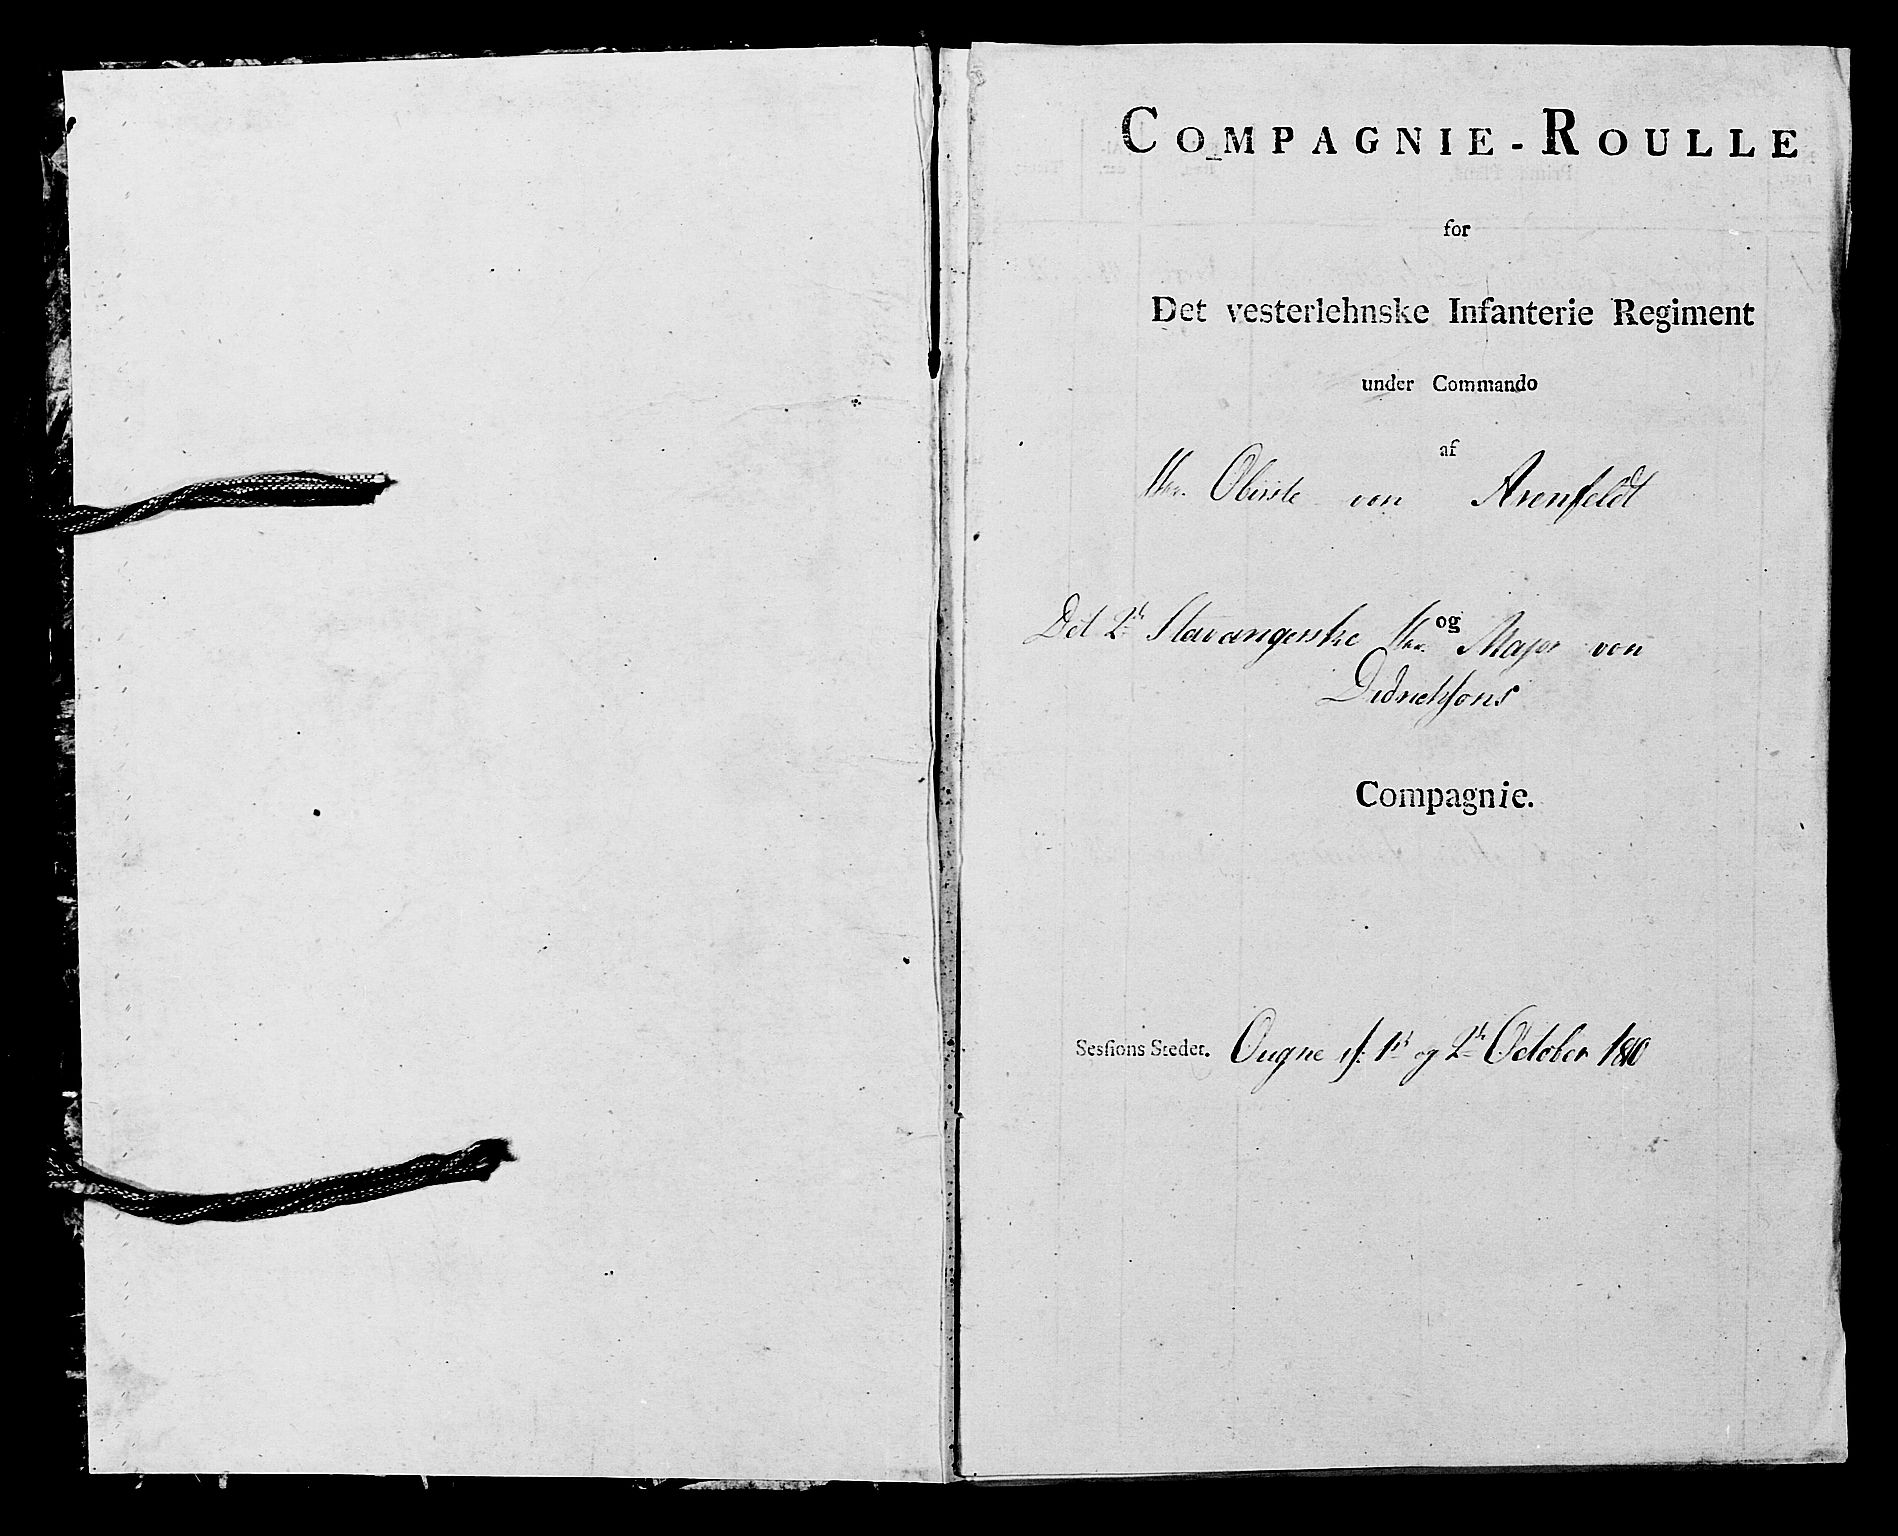 COMPAGNIE-ROULLE
for
Det vesterlehnske Infanterie Regiment
under Commando
af
Hr. Obriste von Arenfeldt
og
Det 2de Stavangerske Hr. Major von
Didrichsons
Compagnie.
Sesſions Steder. Ougne d: 1ste og 2de October 1810